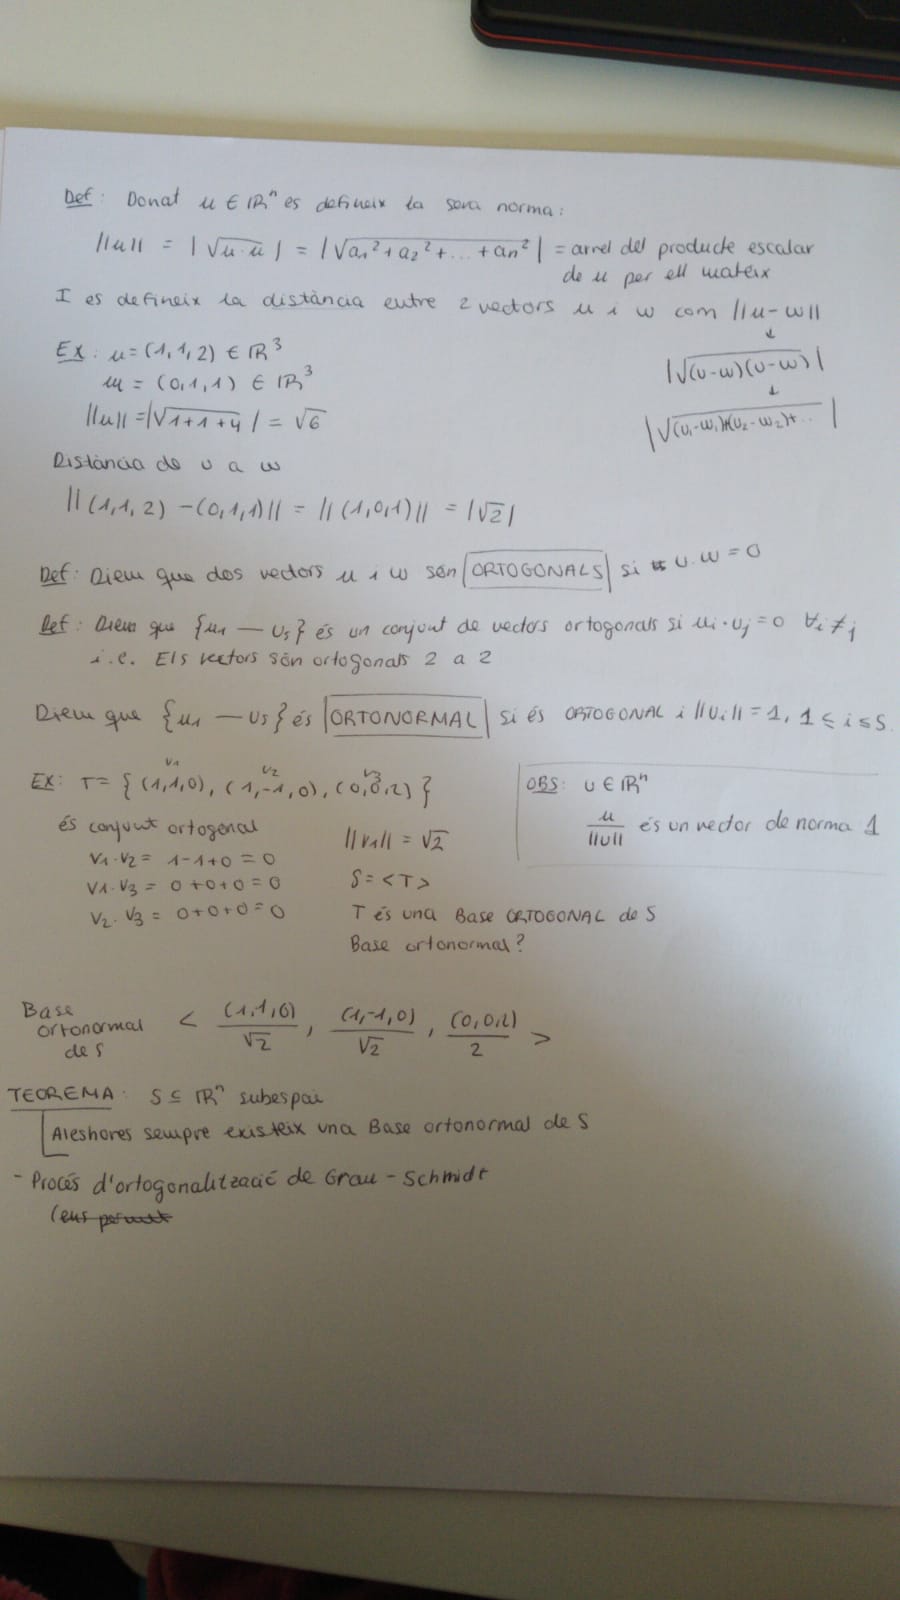 Def: Donat u ∈ ℝⁿ es defineix la seva norma:
||u|| = |√u·u| = |√a₁²+a₂²+...+an²| = arrel del producte escalar
de u per ell mateix
I es defineix la distància entre 2 vectors u i w com ||u-w||
↓
|√(u-w)(u-w)|
↓
|√(u₁-w₁)+(u₂-w₂)+..|
Ex: u=(1,1,2) ∈ ℝ³
w = (0,1,1) ∈ ℝ³
||u|| = |√1+1+4| = √6
Distància de u a w
||(1,1,2) -(0,1,1)|| = ||(1,0,1)|| = |√2|
Def: Diem que dos vectors u i w són ORTOGONALS si u·w=0
Def: Diem que {u₁ — us} és un conjunt de vectors ortogonals si ui·uj=0 ∀i≠j
i.e. Els vectors són ortogonals 2 a 2
Diem que {u₁ — us} és ORTONORMAL si és ORTOGONAL i ||ui||=1, 1≤i≤s.
v1 v2 v3
EX: T= {(1,1,0), (1,-1,0), (0,0,2)}
és conjunt ortogonal
v1·v2= 1-1+0=0
v1·v3= 0+0+0=0
v2·v3= 0+0+0=0
||v1||= √2
S=<T>
T és una Base ORTOGONAL de S
Base ortonormal?
OBS: u ∈ ℝⁿ
u/||u|| és un vector de norma 1
Base
ortonormal
de S
< (1,1,0)/√2, (1,-1,0)/√2, (0,0,2)/2 >
TEOREMA: S ⊆ ℝⁿ subespai
Aleshores sempre existeix una Base ortonormal de S
- Procés d'ortogonalització de Grau-Schmidt
(ens permet